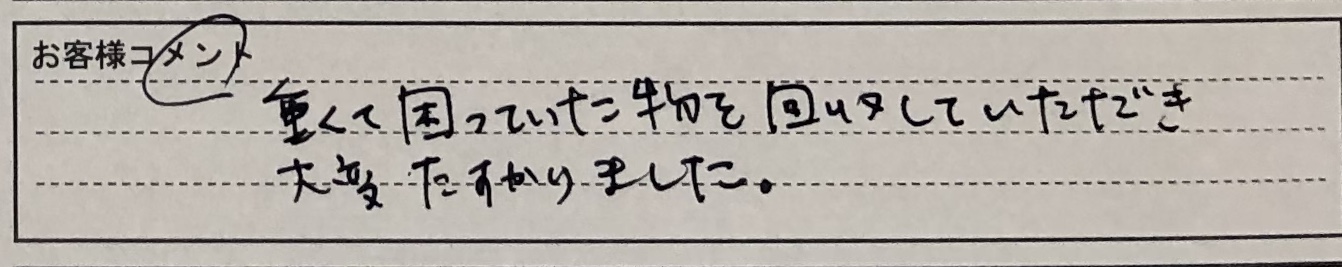 お客様コメント
重くて困っていた物を回収していただき
大変たすかりました。